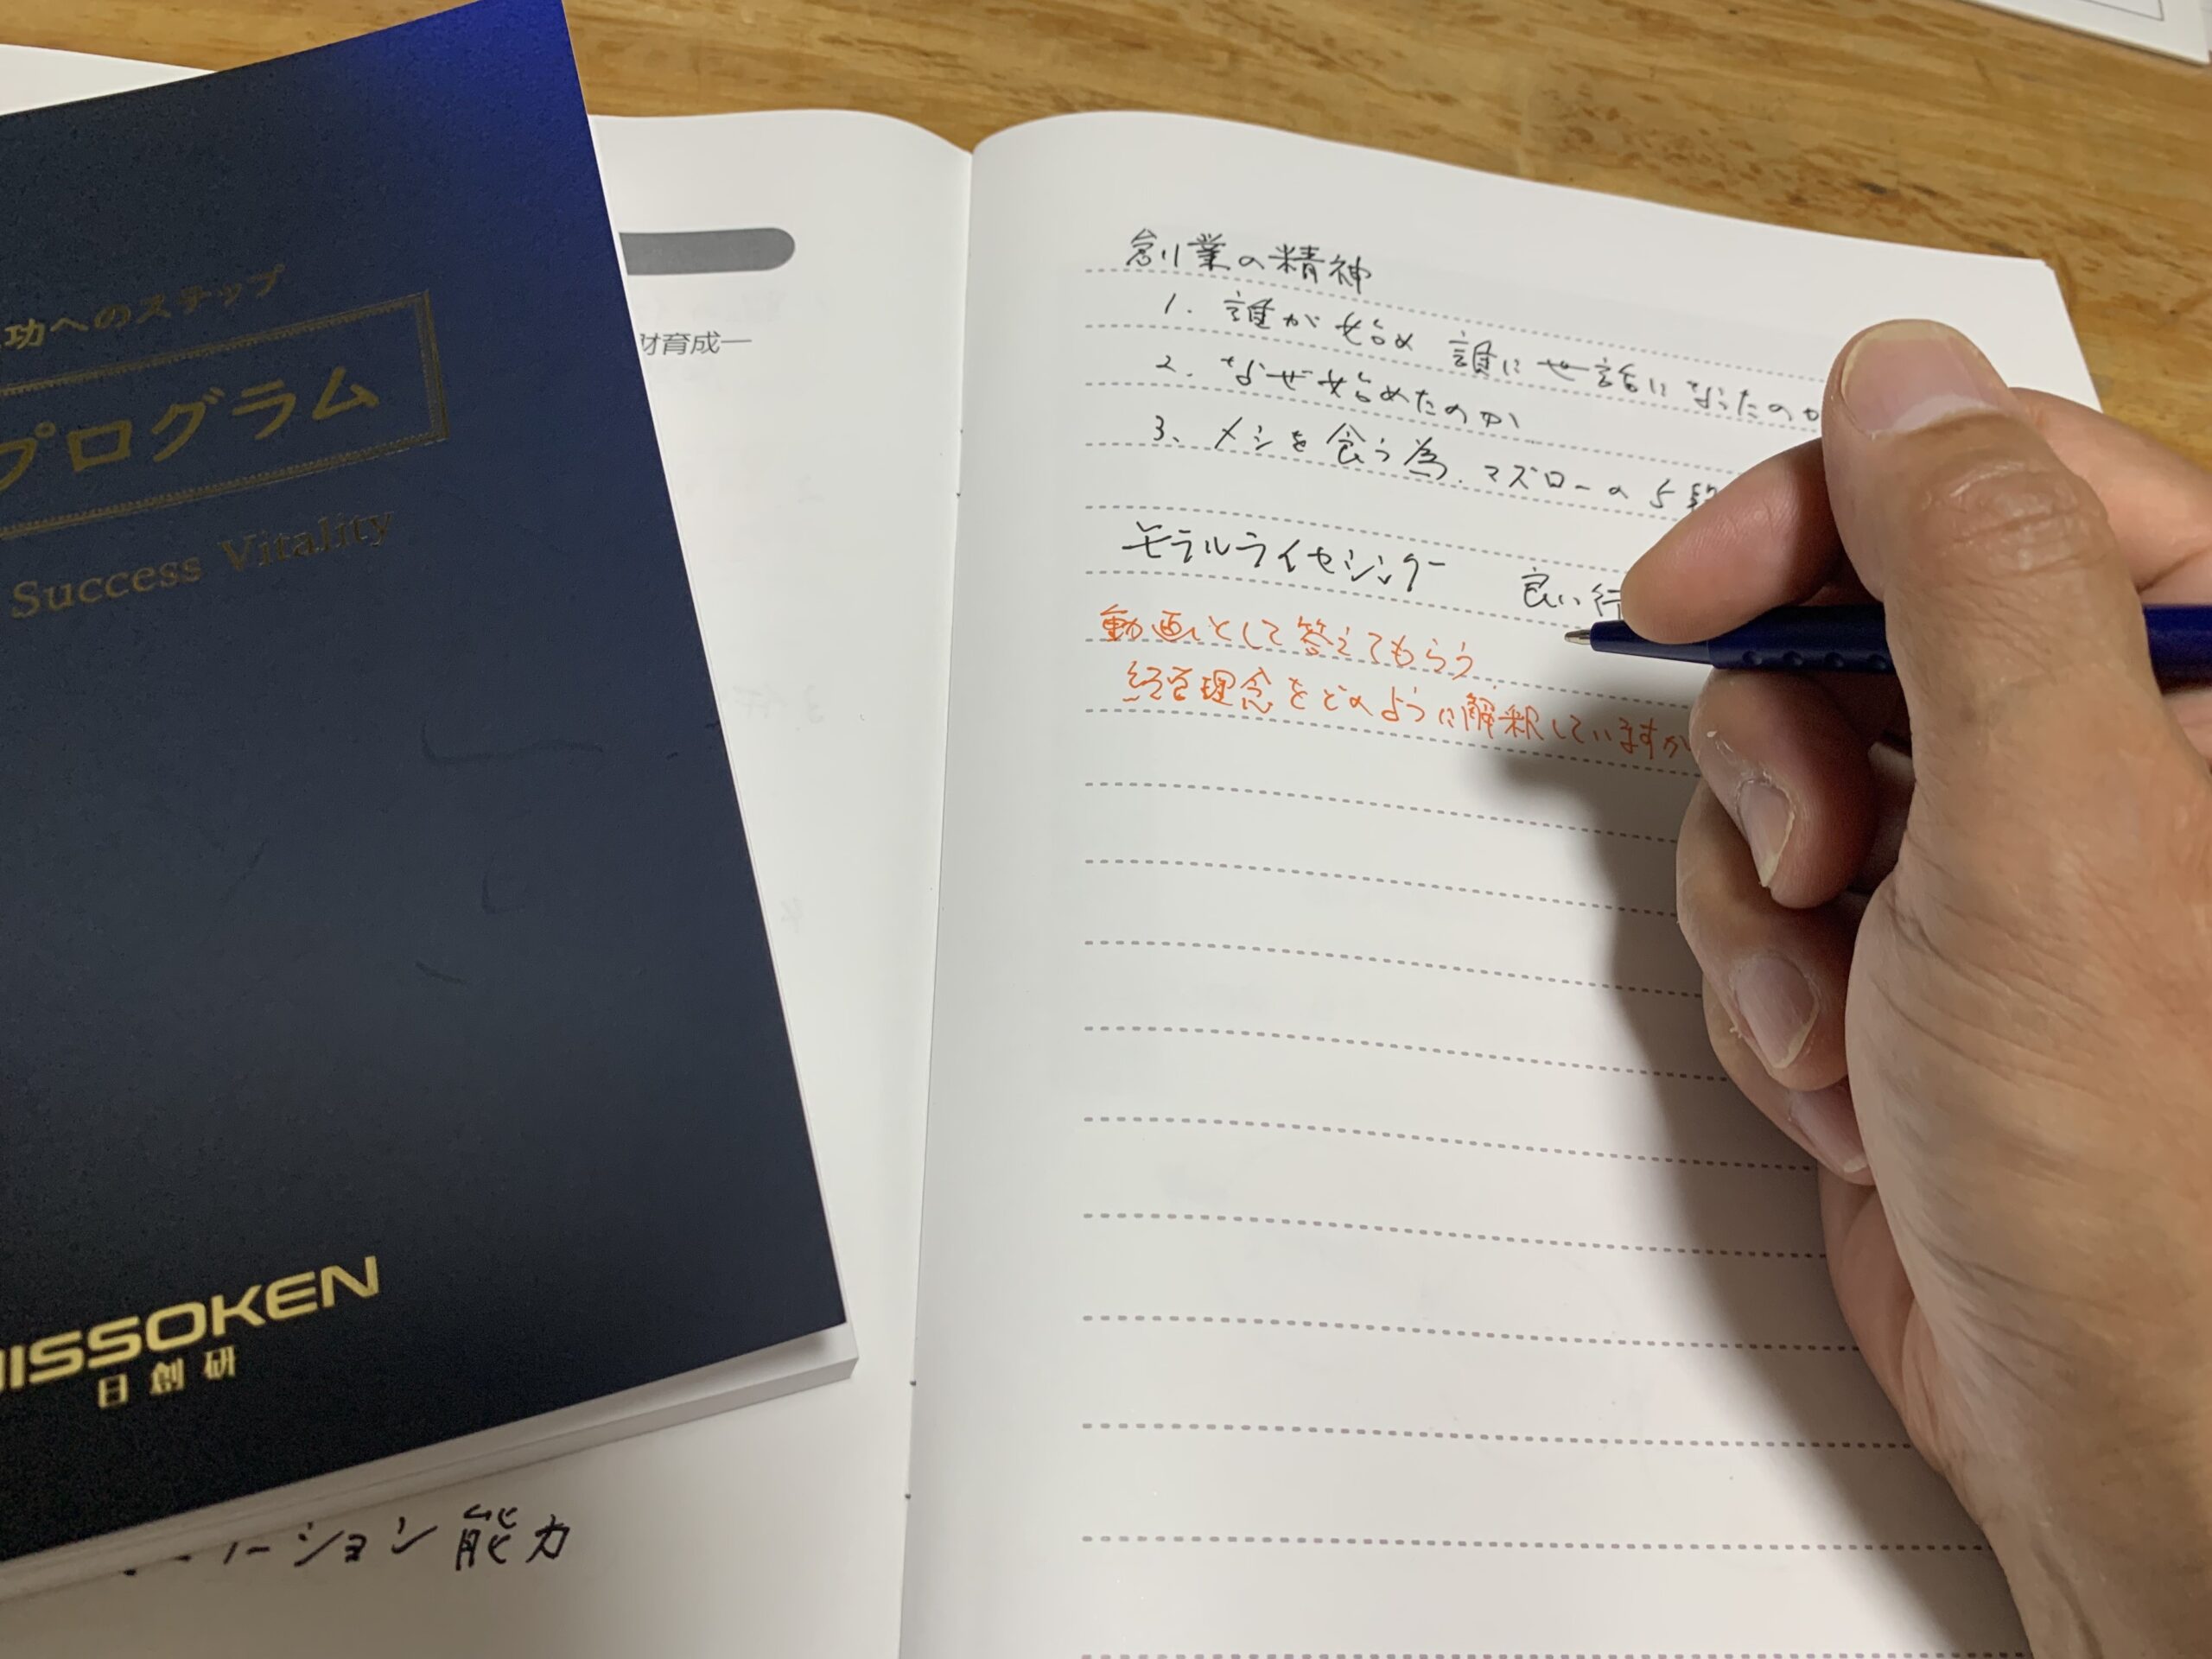 功へのステップ
プログラム
Success Vitality
NISSOKEN
日創研
財育成―
ーション能力
創業の精神
1. 誰が始め 誰に世話になったのか
2. なぜ始めたのか
3、メシを食う為、マズローの5段
モラルライセンシング 良い行
動画にとして答えてもらう。
経営理念をどのように解釈していますか